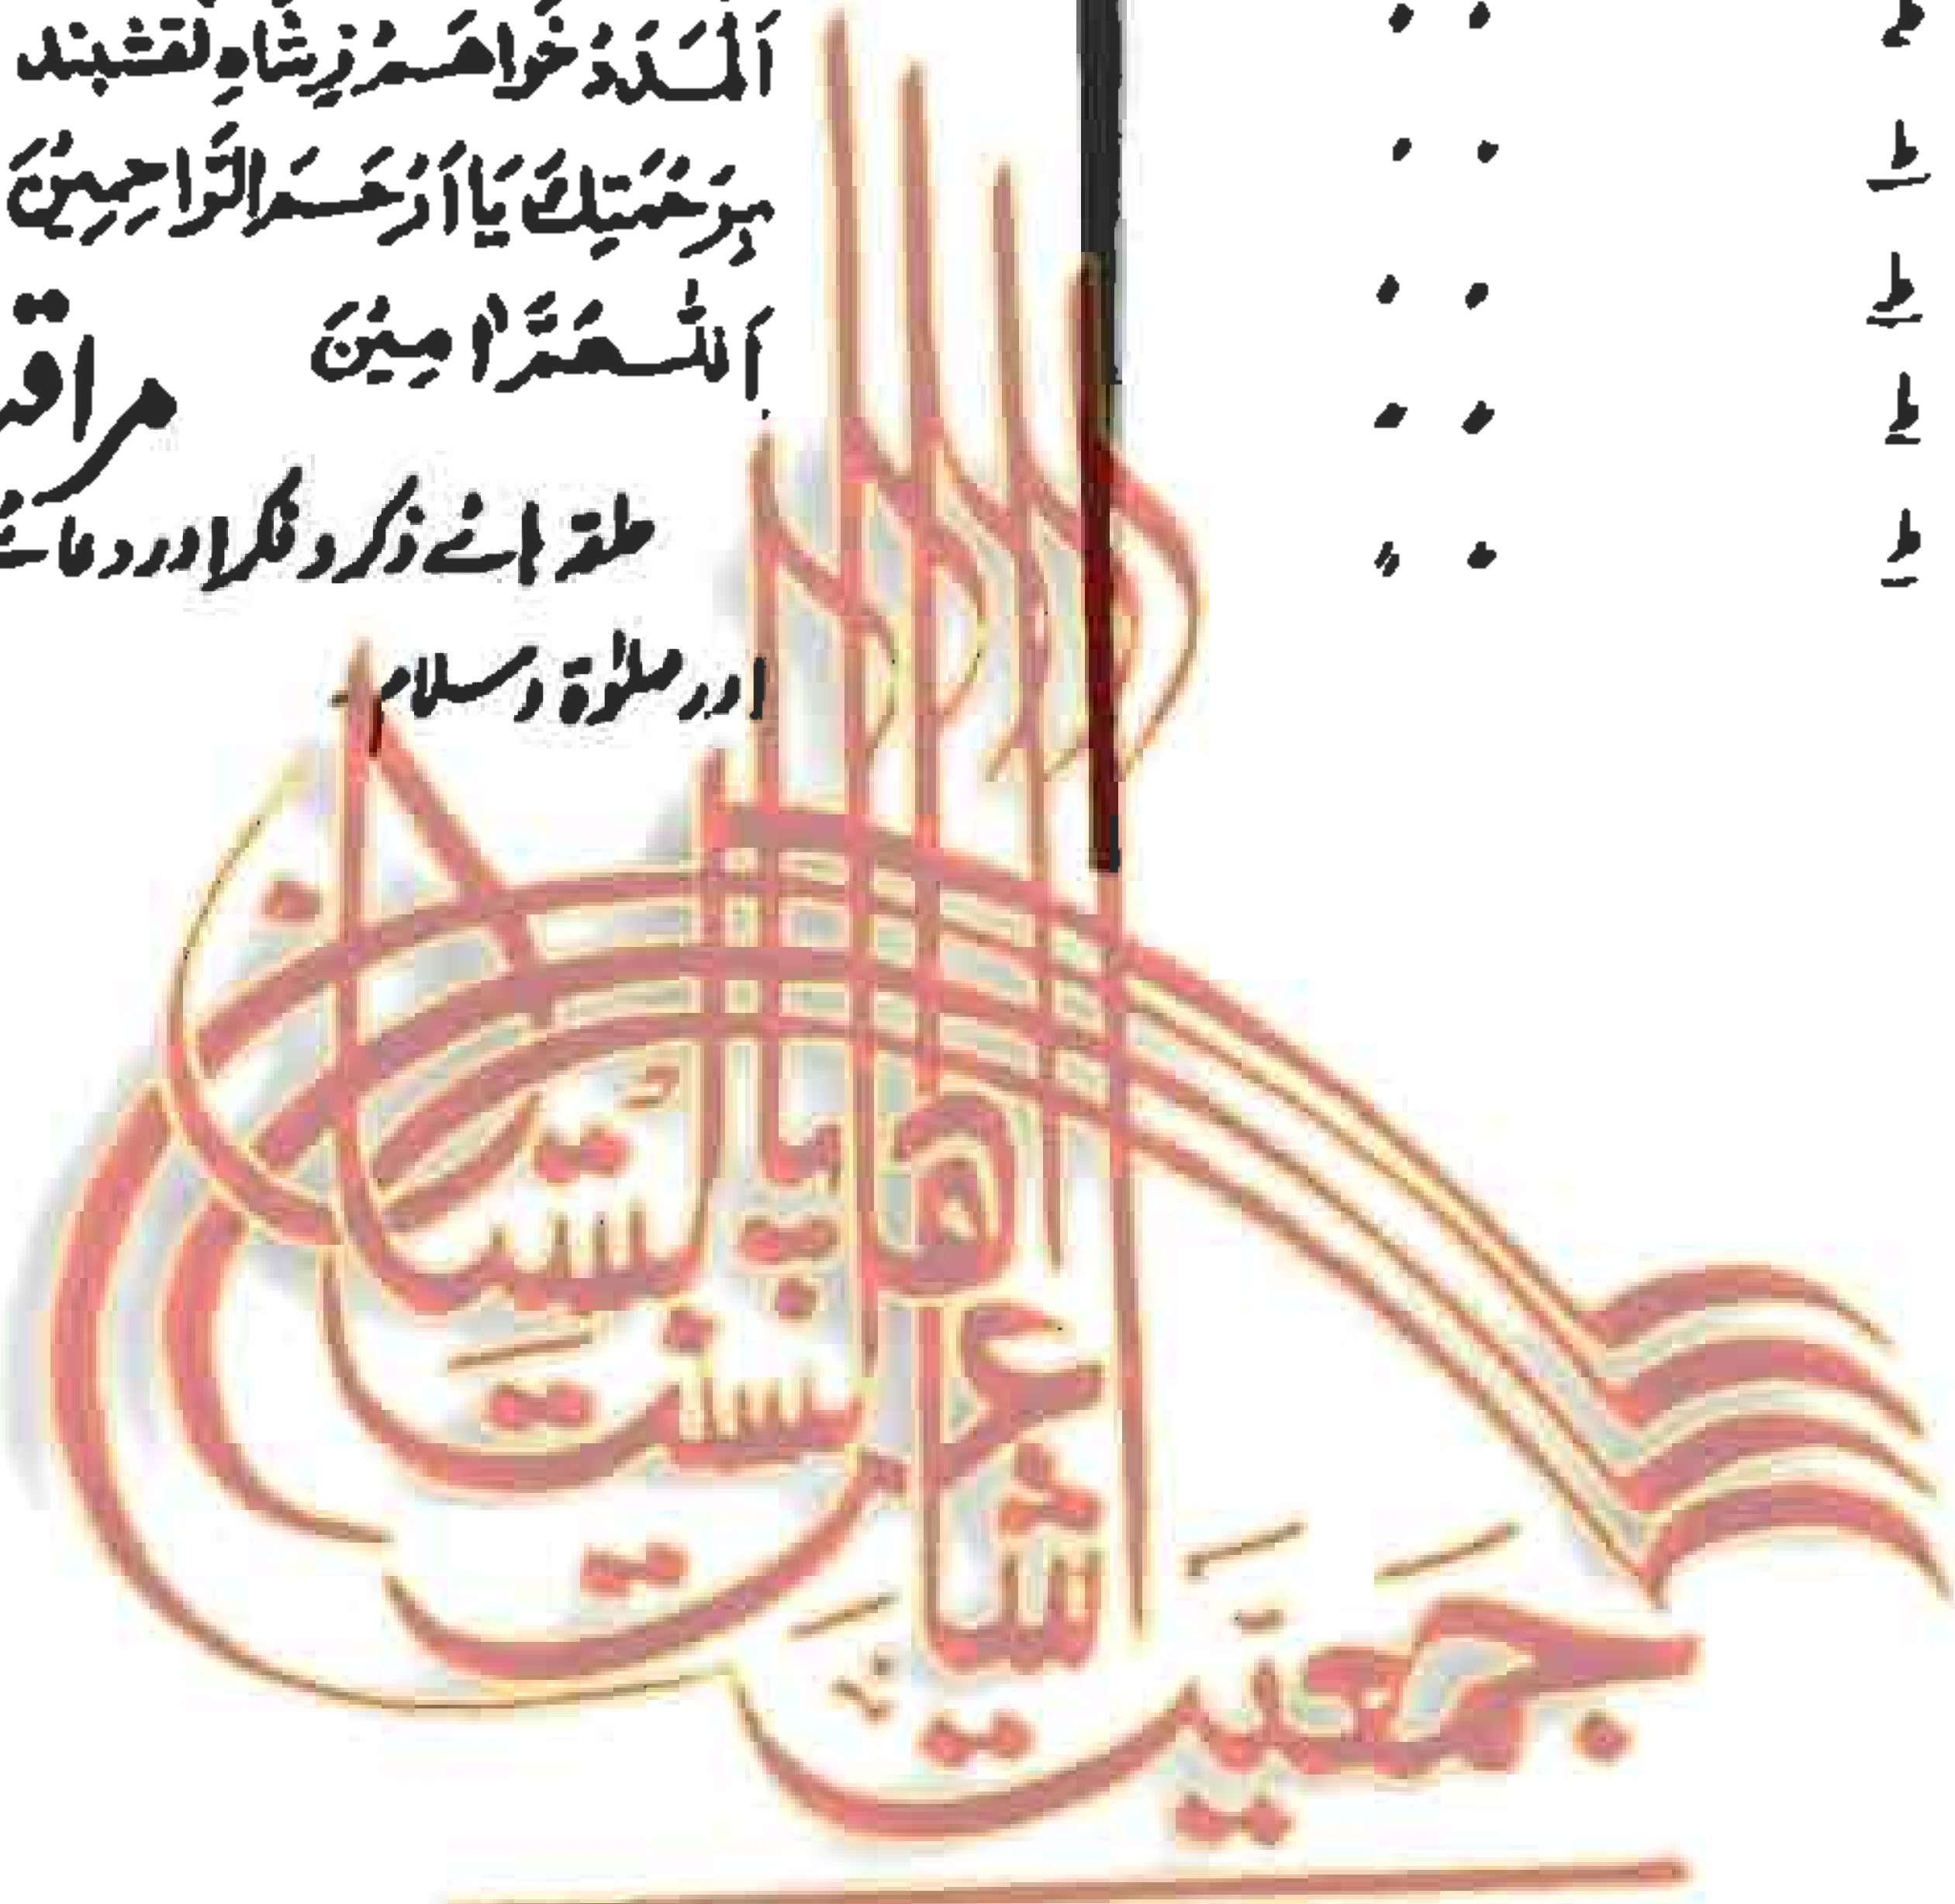 اَلْمَدَدْ خَواهَمْ زِشَاهِ نَقشبند
بِرَحْمَتِكَ يَا اَرْحَمَ الرَّاحِمِيْنَ
اَللّٰهُمَّ اٰمِيْنَ
حلقۂ ہائے ذکر و فکر اور دعائے
اور صلوٰۃ و سلام
جمعیت
اشاعت
اہلسنت
پاکستان